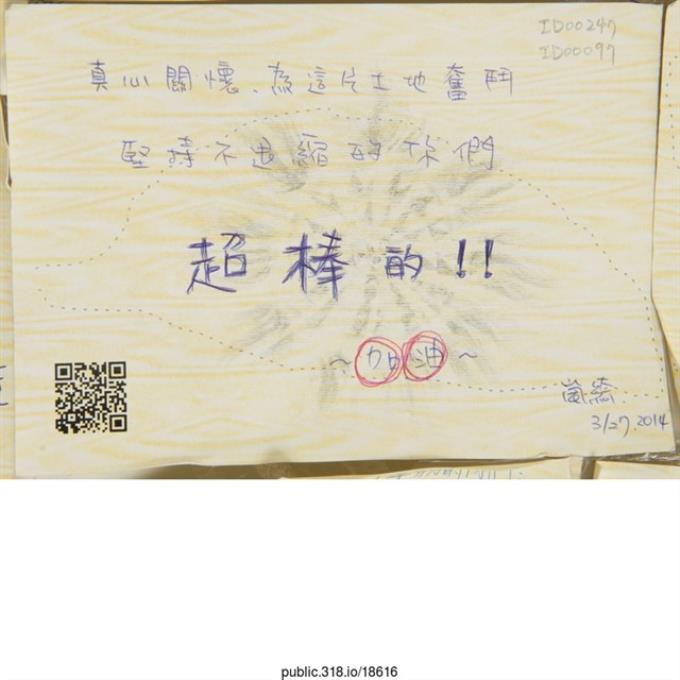 ID00247
ID00097
真心關懷、為這片土地奮鬥
堅持不退縮的你們
超棒的!!
~加油~
3/27.2014
public.318.io/18616